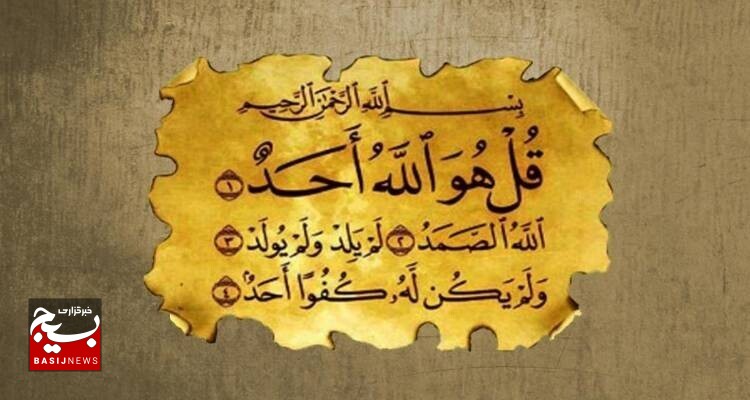 بِسْمِ ٱللَّهِ ٱلرَّحْمَٰنِ ٱلرَّحِيمِ
قُلْ هُوَ ٱللَّهُ أَحَدٌ ١
ٱللَّهُ ٱلصَّمَدُ ٢ لَمْ يَلِدْ وَلَمْ يُولَدْ ٣
وَلَمْ يَكُن لَّهُۥ كُفُوًا أَحَدٌۢ ٤
خبرگزاری
بسیج
BASIJNEWS